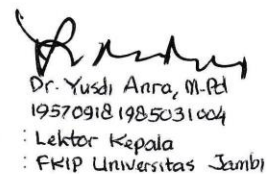 Dr. Yusdi Anra, M.Pd
19570918 1985031004
: Lektor Kepala
: FKIP Universitas Jambi